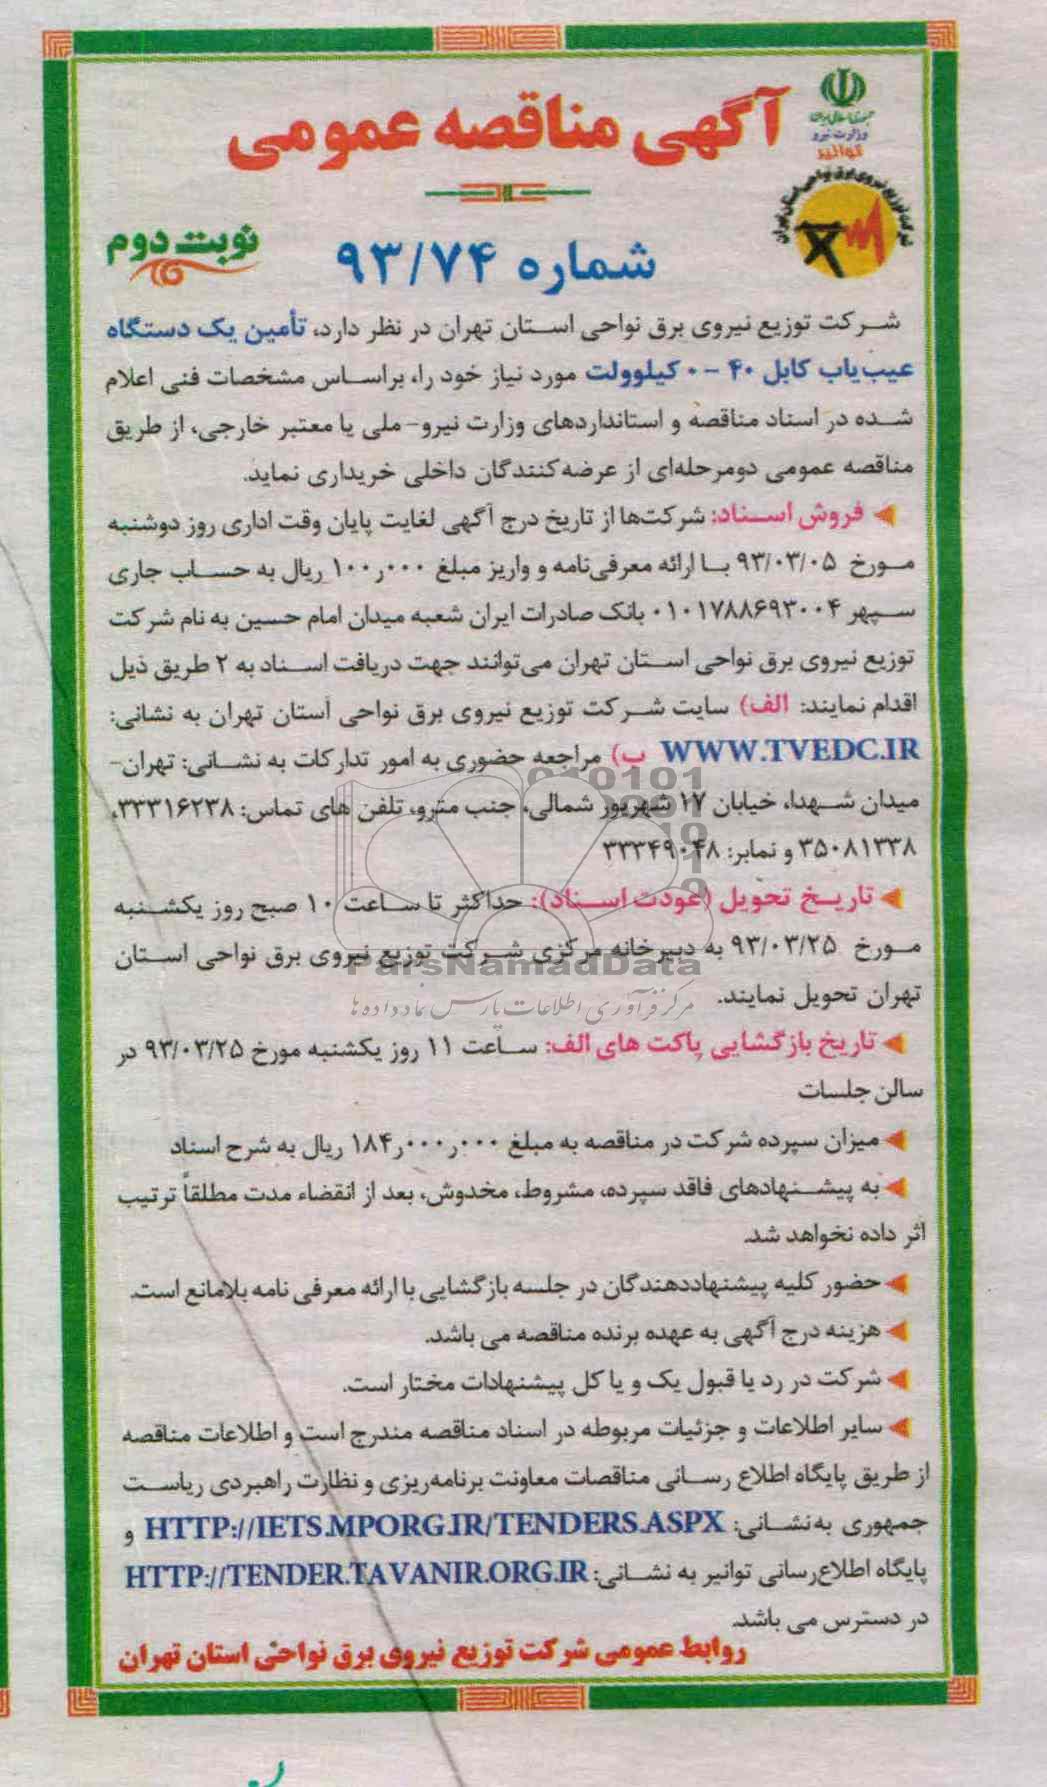 جمهوری اسلامی ایران
وزارت نیرو
توانیر
شرکت توزیع نیروی برق نواحی استان تهران
آگهی مناقصه عمومی
شماره ۹۳/۷۴
نوبت دوم
شرکت توزیع نیروی برق نواحی استان تهران در نظر دارد، تأمین یک دستگاه
عیب‌یاب کابل ۴۰ - ۰ کیلوولت مورد نیاز خود را، براساس مشخصات فنی اعلام
شده در اسناد مناقصه و استانداردهای وزارت نیرو- ملی یا معتبر خارجی، از طریق
مناقصه عمومی دومرحله‌ای از عرضه‌کنندگان داخلی خریداری نماید.
فروش اسناد: شرکت‌ها از تاریخ درج آگهی لغایت پایان وقت اداری روز دوشنبه
مورخ ۹۳/۰۳/۰۵ با ارائه معرفی‌نامه و واریز مبلغ ۱۰۰ر۰۰۰ ریال به حساب جاری
سپهر ۰۱۰۱۷۸۸۶۹۳۰۰۴ بانک صادرات ایران شعبه میدان امام حسین به نام شرکت
توزیع نیروی برق نواحی استان تهران می‌توانند جهت دریافت اسناد به ۲ طریق ذیل
اقدام نمایند: الف) سایت شرکت توزیع نیروی برق نواحی استان تهران به نشانی:
WWW.TVEDC.IR ب) مراجعه حضوری به امور تدارکات به نشانی: تهران-
میدان شهدا، خیابان ۱۷ شهریور شمالی، جنب مترو، تلفن های تماس: ۳۳۳۱۶۲۳۸،
۳۵۰۸۱۳۳۸ و نمابر: ۳۳۳۴۹۰۴۸
تاریخ تحویل (عودت اسناد): حداکثر تا ساعت ۱۰ صبح روز یکشنبه
مورخ ۹۳/۰۳/۲۵ به دبیرخانه مرکزی شرکت توزیع نیروی برق نواحی استان
تهران تحویل نمایند.
ParsNamadData
مرکز فرآوری اطلاعات پارس نماد داده ها
تاریخ بازگشایی پاکت های الف: ساعت ۱۱ روز یکشنبه مورخ ۹۳/۰۳/۲۵ در
سالن جلسات
میزان سپرده شرکت در مناقصه به مبلغ ۱۸۴ر۰۰۰ر۰۰۰ ریال به شرح اسناد
به پیشنهادهای فاقد سپرده، مشروط، مخدوش، بعد از انقضاء مدت مطلقاً ترتیب
اثر داده نخواهد شد.
حضور کلیه پیشنهاددهندگان در جلسه بازگشایی با ارائه معرفی نامه بلامانع است.
هزینه درج آگهی به عهده برنده مناقصه می باشد.
شرکت در رد یا قبول یک و یا کل پیشنهادات مختار است.
سایر اطلاعات و جزئیات مربوطه در اسناد مناقصه مندرج است و اطلاعات مناقصه
از طریق پایگاه اطلاع رسانی مناقصات معاونت برنامه‌ریزی و نظارت راهبردی ریاست
جمهوری به‌نشانی: HTTP://IETS.MPORG.IR/TENDERS.ASPX و
پایگاه اطلاع‌رسانی توانیر به نشانی: HTTP://TENDER.TAVANIR.ORG.IR
در دسترس می باشد.
روابط عمومی شرکت توزیع نیروی برق نواحی استان تهران